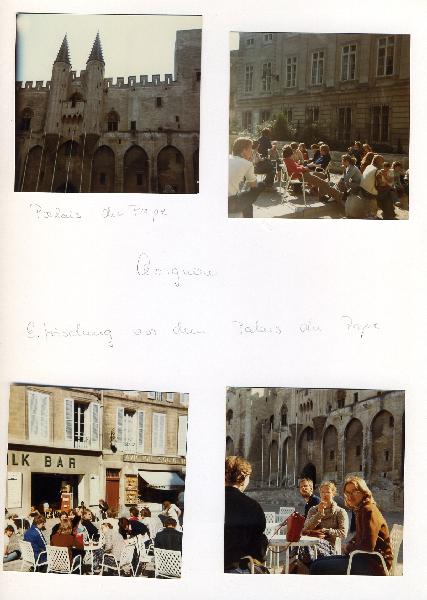 Palais du Pape
Avignon
Erfrischung vor dem Palais du Pape
LK BAR